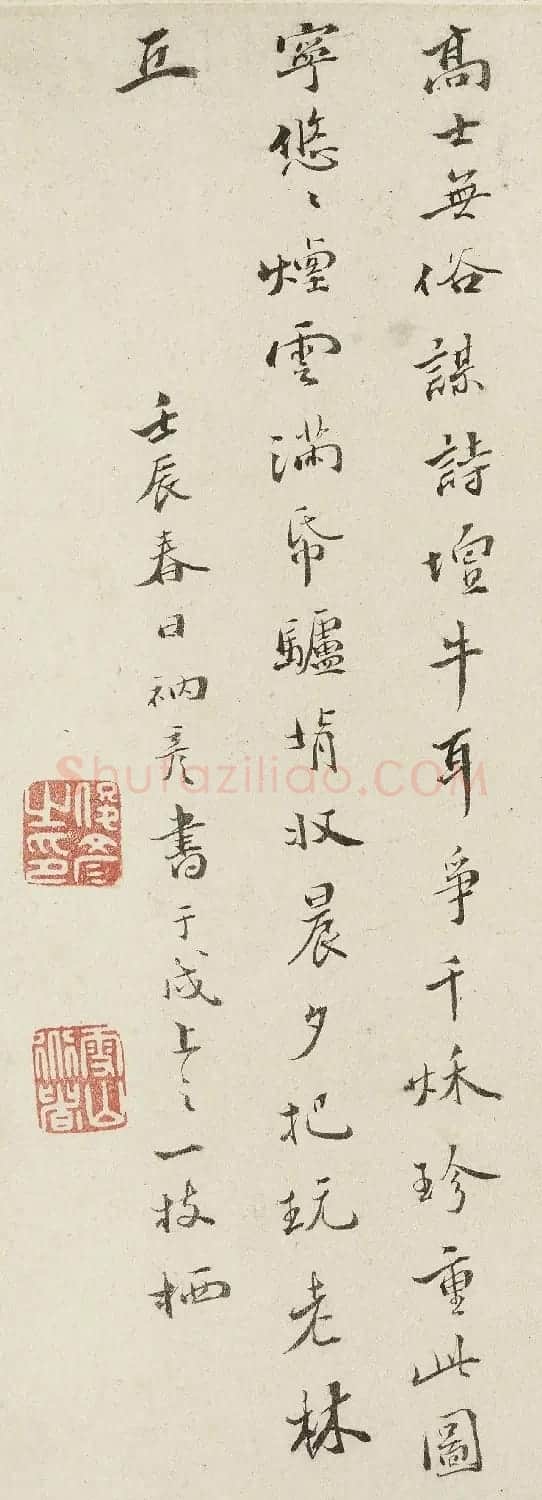 高士無俗謀詩壇牛耳爭千秌珍重此圖
寧悠〻煙雲滿帋驢背收晨夕把玩老林
丘
壬辰春日衲彥書于成上之一枝栖
Shufaziliao.COM